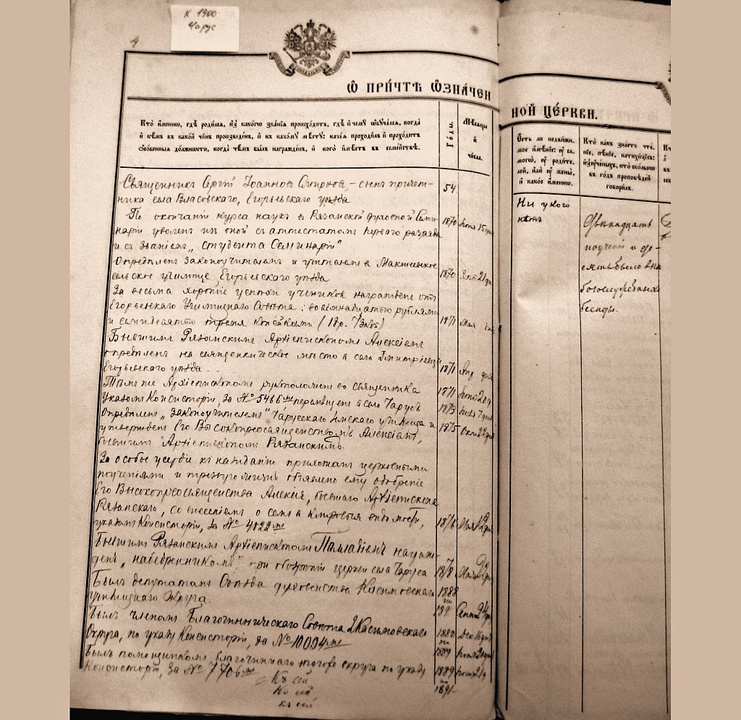 К 1900
Чарус
4
Ѡ ПРИЧТѢ ѠЗНАЧЕН
НОЙ ЦЕРКВИ.
Кто именно, гдѣ родился, изъ какого званія происходитъ, гдѣ и чему обучался, когда
и кѣмъ въ какой чинъ произведенъ, и къ какому мѣсту; какія проходилъ и проходитъ
особенныя должности, когда чѣмъ былъ награжденъ, и кого имѣетъ въ семействѣ.
Годы.
Мѣсяцы
и
числа.
Есть ли недвижи-
мое имѣніе; у са-
мого, у родите-
лей, или у жены,
и какое именно.
Кто какъ знаетъ чте-
ніе, пѣніе, катихизисъ;
изъ ученыхъ, кто сколько
въ годъ проповѣдей
говорилъ.
Священникъ Сергій Іоанновъ Смирновъ – сынъ причет-
ника села Власовскаго, Егорьевскаго уѣзда
54
По окончаніи курса наукъ в Рязанской Духовной Семи-
наріи уволенъ изъ оной съ аттестатомъ перваго разряда
и съ званіемъ „студента Семинаріи"
1870
Опредѣленъ законоучителемъ и учителемъ в
сельское училище Егорьевскаго уѣзда
1870
За весьма хорошіе успѣхи учениковъ награжденъ отъ
Егорьевскаго Училищнаго Совѣта: восемнадцатью рублями
и семидесятью тремя копѣйками (18р. 73коп)
1871 Мая
Бывшимъ Рязанскимъ Архіепископомъ Алексіемъ
опредѣленъ на священническое мѣсто в село
Егорьевскаго уѣзда.
1871
Тѣмъ же Архіепископомъ рукоположенъ во священника
1871
Указомъ Консисторіи, за № 5466мъ перемѣщенъ в село Чарусъ
1873
Опредѣленъ „законоучителемъ" Чарусскаго Земскаго училища и
утвержденъ Его Высокопреосвященствомъ Алексіемъ,
бывшимъ Архіепископомъ Рязанскимъ.
1875
За особое усердіе къ назиданію прихожанъ церковными
поученіями и трезвую жизнь объявлено ему одобреніе
Его Высокопреосвященства Алексія, бывшаго Архіепископа
Рязанскаго, со внесеніемъ о семъ в
указомъ Консисторіи, за № 4022мъ
1876 Мая
Бывшимъ Рязанскимъ Архіепископомъ Палладіемъ награж-
денъ „набедренникомъ" при церкви села Чаруса
187
Былъ депутатомъ Съѣзда духовенства Касимовскаго
училищнаго Округа.
1888
по
189
Былъ членомъ Благочинническаго Совѣта 2 Касимовскаго
Округа, по указу Консисторіи, за № 10094мъ
1880
по
1889
Былъ помощникомъ благочиннаго того же округа по указу
Консисторіи, за № 7706мъ
1889
по
1891
Къ сей
Къ сей
къ сей
Ни у кого
нѣтъ
Двѣнадцать
поученій и де-
сять было внѣ
богослужебныхъ
бесѣдъ.